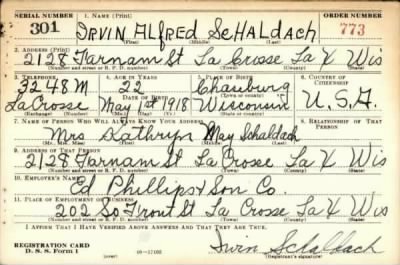 SERIAL NUMBER 1. NAME (Print) ORDER NUMBER
301 IRVIN ALFRED SCHALDACH 773
2. ADDRESS (Print)
2128 Farnam St La Crosse La X Wis
(Number and street or R. F. D. number) (Town) (County) (State)
3. TELEPHONE 4. AGE IN YEARS 5. PLACE OF BIRTH 6. COUNTRY OF CITIZENSHIP
3248 M 22 Chaseburg
DATE OF BIRTH (Town or county)
La Crosse May 1st 1918 Wisconsin U.S.A.
(Exchange) (Number) (Mo.) (Day) (Yr.) (State or country)
7. NAME OF PERSON WHO WILL ALWAYS KNOW YOUR ADDRESS 8. RELATIONSHIP OF THAT PERSON
Mrs Kathryn May Schaldach
(Mr., Mrs., Miss) (First) (Middle) (Last)
9. ADDRESS OF THAT PERSON
2128 Farnam St La Crosse La X Wis
(Number and street or R. F. D. number) (Town) (County) (State)
10. EMPLOYER'S NAME
Ed Phillips & Son Co.
11. PLACE OF EMPLOYMENT OR BUSINESS
202 So Front St La Crosse La X Wis
(Number and street or R. F. D. number) (Town) (County) (State)
I AFFIRM THAT I HAVE VERIFIED ABOVE ANSWERS AND THAT THEY ARE TRUE.
REGISTRATION CARD
D. S. S. Form 1 (over) 16—17105 Irvin Schaldach
(Registrant's signature)